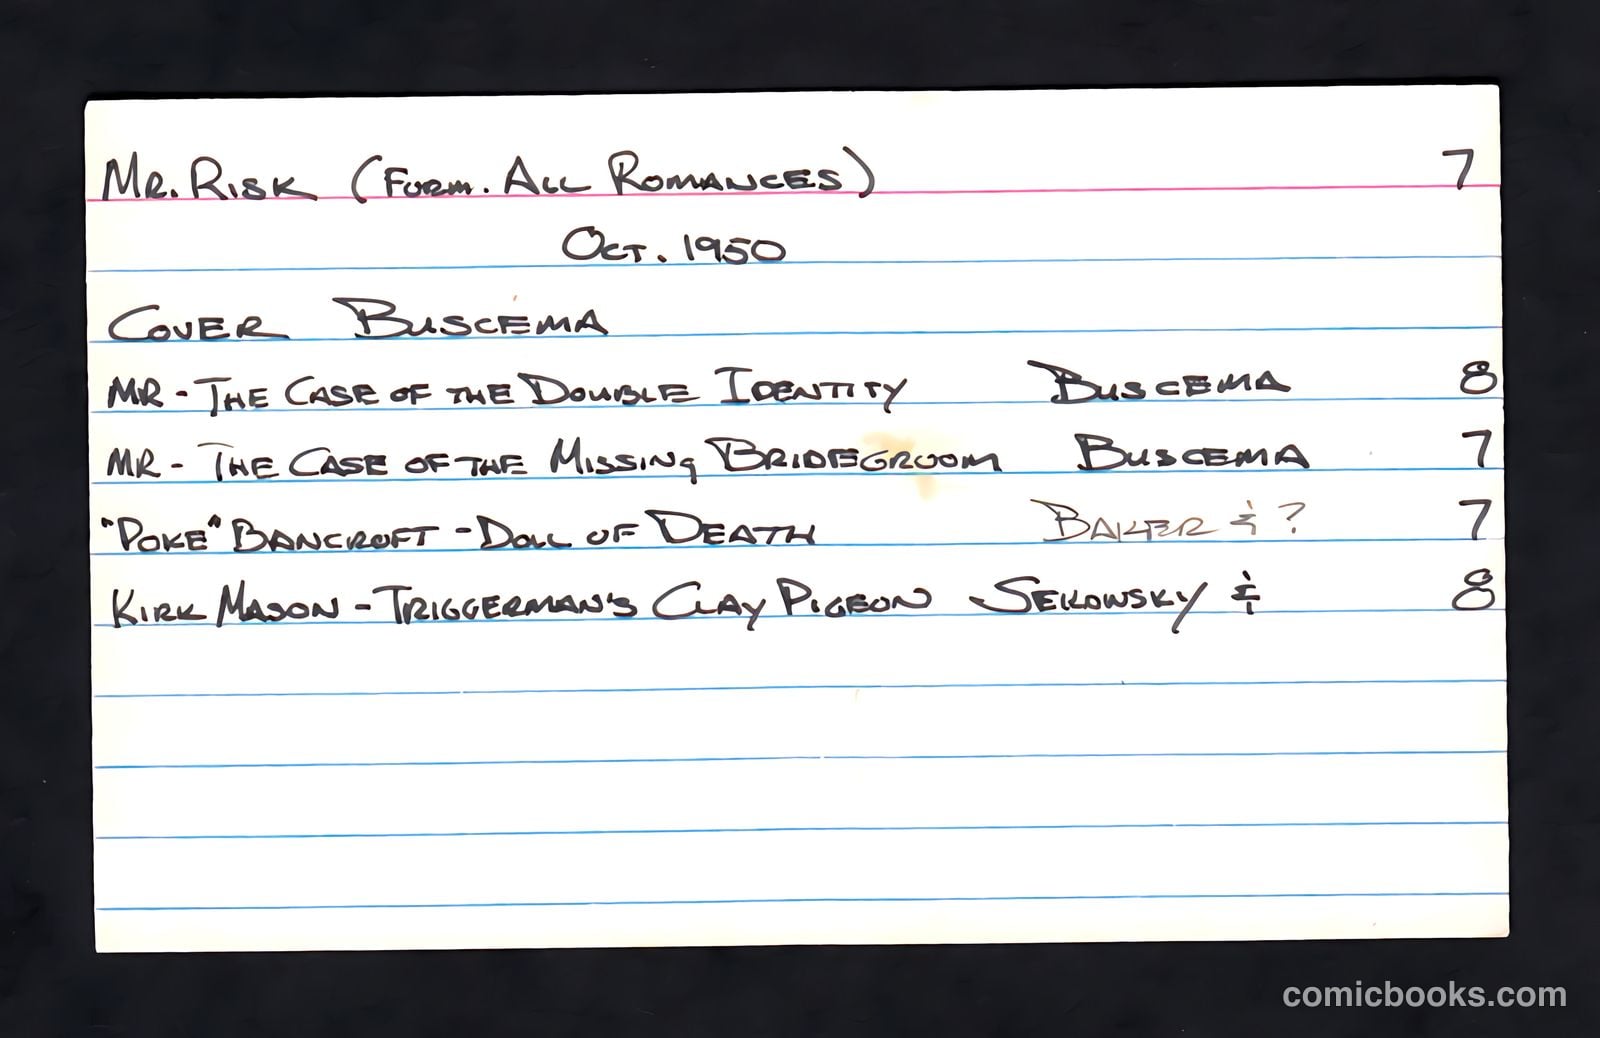 Mr. Risk (Form. All Romances) 7
Oct. 1950
Cover Buscema
MR - The Case of the Double Identity Buscema 8
MR - The Case of the Missing Bridegroom Buscema 7
"Poke" Bancroft - Doll of Death Baker & ? 7
Kirk Mason - Triggerman's Clay Pigeon Sekowsky & 8
comicbooks.com